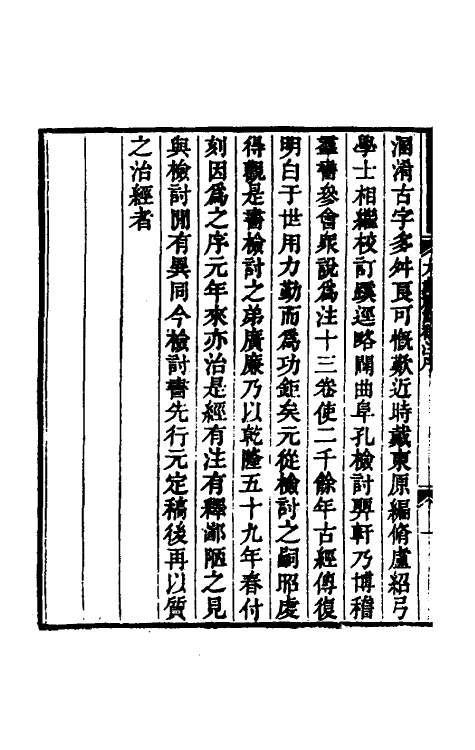 溷淆古字多舛良可慨歎近時戴東原編脩盧紹弓
學士相繼校訂蹊逕略闢曲阜孔檢討㢲軒乃博稽
羣書參會衆說爲注十三卷使二千餘年古經傳復
明白于世用力勤而爲功鉅矣元從檢討之嗣昭虔
得觀是書檢討之弟廣廉乃以乾隆五十九年春付
刻因爲之序元年來亦治是經有注有釋鄙陋之見
與檢討閒有異同今檢討書先行元定稿後再以質
之治經者